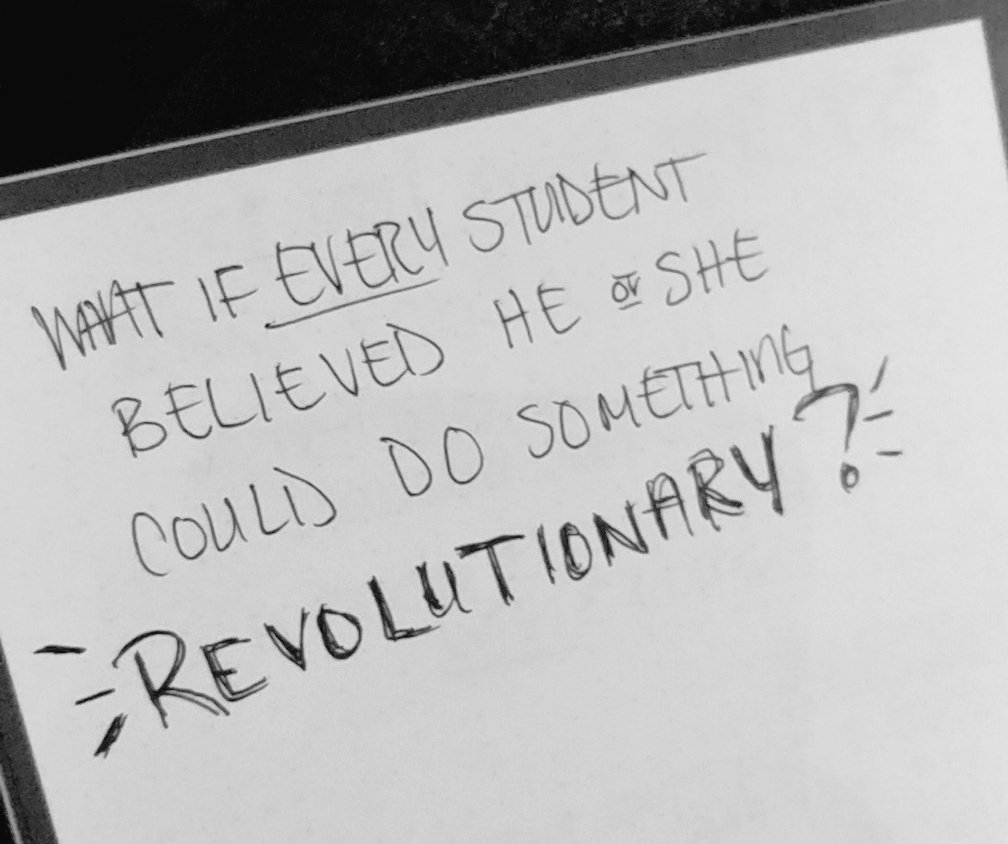 WHAT IF EVERY STUDENT
BELIEVED HE or SHE
COULD DO SOMETHING
REVOLUTIONARY?